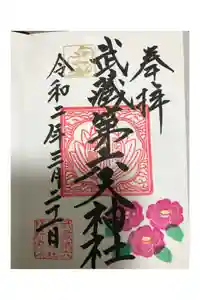 奉拝
武蔵第六天神社
令和二年三月二十一日